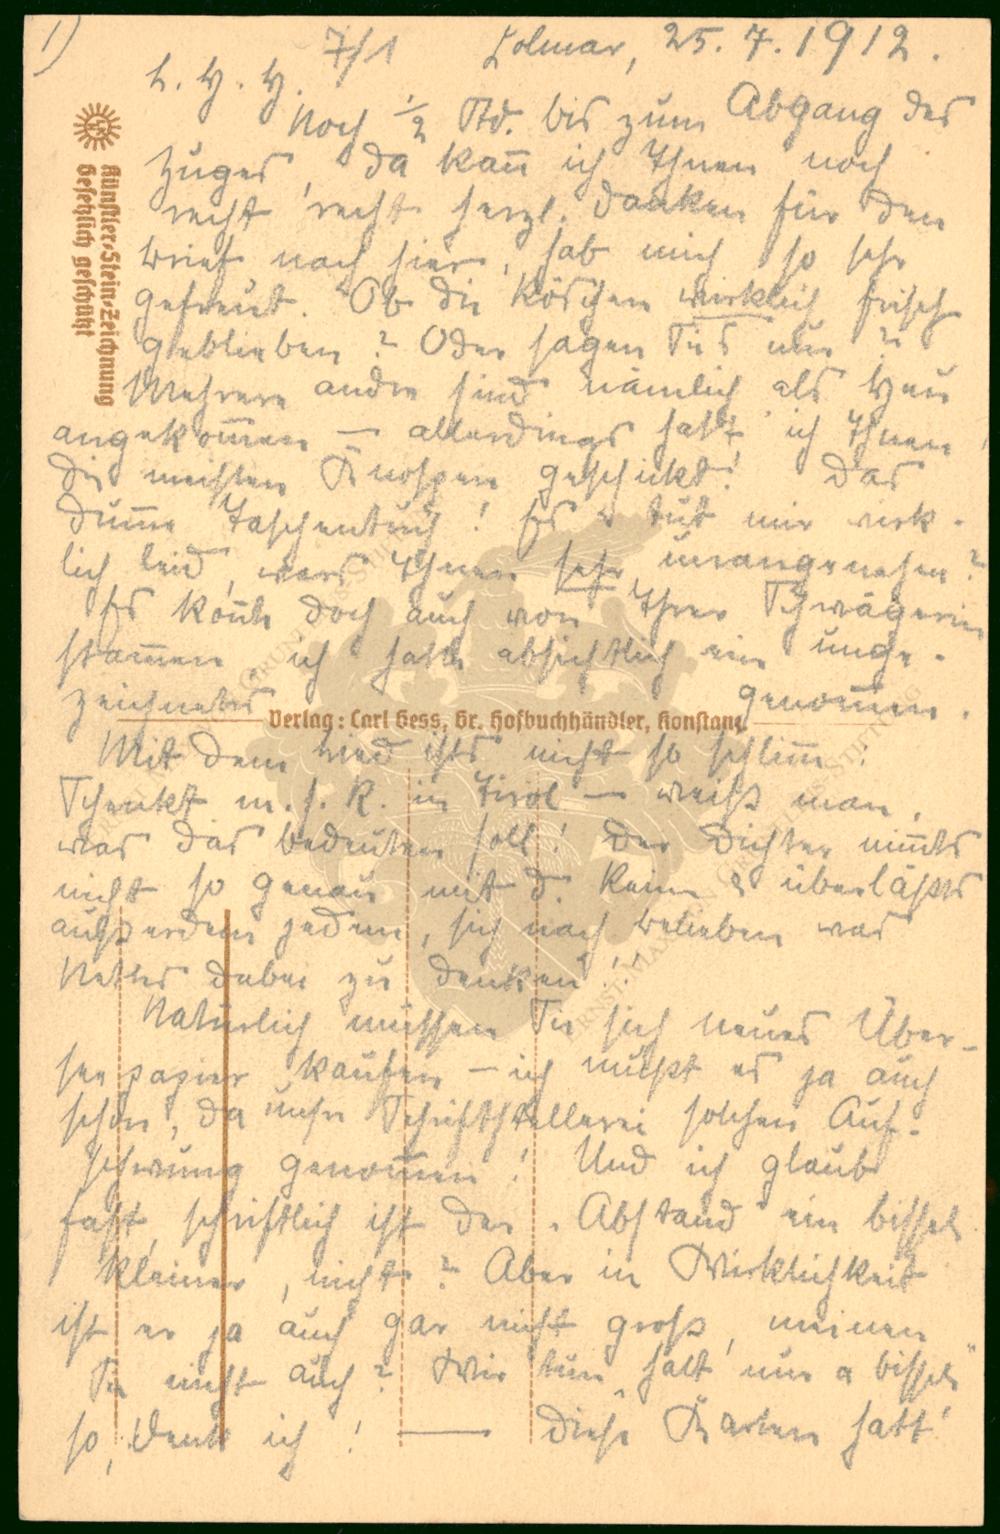 1)
7/1 Colmar, 25. 7. 1912.
L. H. H.
Noch 1/2 Std. bis zum Abgang des
Zuges, da kan̄ ich Ihnen noch
recht, recht herzl. danken für den
Brief nach hier, hab mich so sehr
gefreut. Ob die Röschen wirklich frisch
geblieben? Oder sagen Sie's nur?
Mehrere andre sind nämlich als Heu
angekom̄en — allerdings hatt' ich Ihnen
die meisten Knospen geschickt! Das
dum̄e Taschentuch! Es tut mir wirk-
lich leid, wars Ihnen sehr unangenehm?
Es kön̄te doch auch von Ihrer Schwägerin
stam̄en, ich hatte absichtlich ein unge-
zeichnetes genom̄en.
Mit dem Lied ists nicht so schlim̄!
Schenkt m. s. R. in Tirol — weiß man,
was das bedeuten soll! Der Dichter nim̄ts
nicht so genau mit d. Reim & überläßts
außerdem jedem, sich nach Belieben was
Nettes dabei zu denken!!
Natürlich müssen Sie sich neues Über-
seepapier kaufen — ich mußt es ja auch
schon, da unsre Schriftstellerei solchen Auf-
schwung genom̄en! Und ich glaube
fast, schriftlich ist der "Abstand" ein bissel
kleiner, nicht? Aber in Wirklichkeit
ist er ja auch gar nicht groß, meinen
Sie nicht auch? Wir "tun halt nur a bissel"
so, denk ich! — Diese Karten hatt'
Künstler-Stein-Zeichnung
Gesetzlich geschützt
Verlag: Carl Gess, Gr. Hofbuchhändler, Konstanz